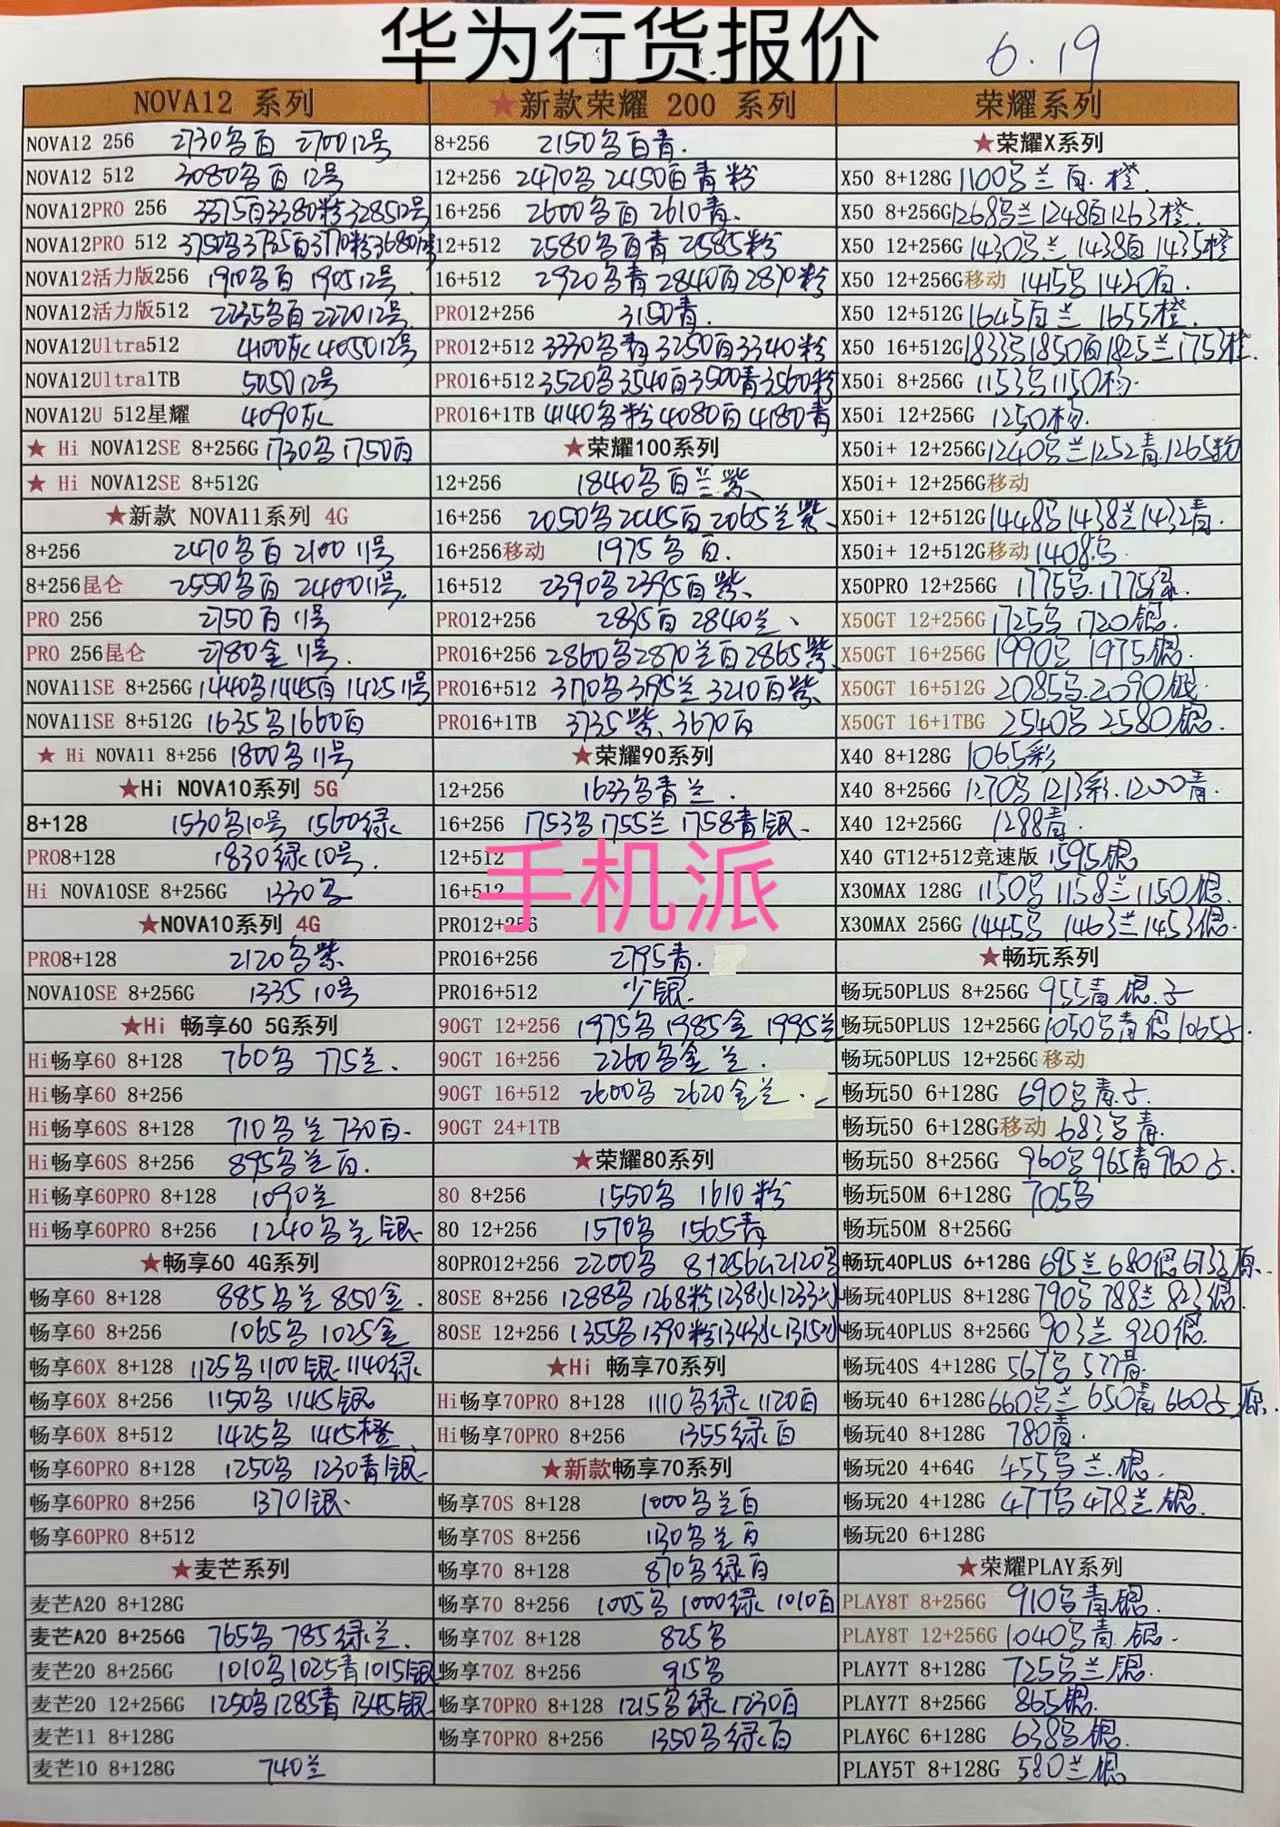 华为行货报价
6.19
NOVA12 系列
NOVA12 256 2730乌百 270012号
NOVA12 512 3080乌百 12号
NOVA12PRO 256 3375百3380粉328512号
NOVA12PRO 512 3750乌3735百3770粉368012号
NOVA12活力版256 1910乌百 190512号
NOVA12活力版512 2235乌百222012号
NOVA12Ultra512 4100灰405012号
NOVA12Ultra1TB 505012号
NOVA12U 512星耀 4090灰
★ Hi NOVA12SE 8+256G 1730乌1750百
★ Hi NOVA12SE 8+512G
★新款 NOVA11系列 4G
8+256 2470乌百 210011号
8+256昆仑 2550乌百240011号
PRO 256 2750百11号
PRO 256昆仑 2780金11号.
NOVA11SE 8+256G 1440乌1445百 142511号
NOVA11SE 8+512G 1635乌1660百
★ Hi NOVA11 8+256 1800乌11号
★Hi NOVA10系列 5G
8+128 1530乌10号 1560绿
PRO8+128 1830绿10号.
Hi NOVA10SE 8+256G 1330乌
★NOVA10系列 4G
PRO8+128 2120乌紫
NOVA10SE 8+256G 133510号
★Hi 畅享60 5G系列
Hi畅享60 8+128 760乌 775兰.
Hi畅享60 8+256
Hi畅享60S 8+128 710乌兰730百.
Hi畅享60S 8+256 895乌兰百.
Hi畅享60PRO 8+128 1090兰
Hi畅享60PRO 8+256 1240乌兰银.
★畅享60 4G系列
畅享60 8+128 885乌兰850金.
畅享60 8+256 1065乌1025金
畅享60X 8+128 1125乌1100银1140绿
畅享60X 8+256 1150乌1145银
畅享60X 8+512 1425乌1415橙
畅享60PRO 8+128 1250乌1230青银.
畅享60PRO 8+256 1370银.
畅享60PRO 8+512
★麦芒系列
麦芒A20 8+128G
麦芒A20 8+256G 765乌785绿兰.
麦芒20 8+256G 1010乌1025青1015银
麦芒20 12+256G 1250乌1285青1345银
麦芒11 8+128G
麦芒10 8+128G 740兰
★新款荣耀 200 系列
8+256 2150乌百青.
12+256 2470乌2450百青粉
16+256 2600乌百2610青.
12+512 2580乌百青2585粉
16+512 2920乌青2840百2870粉
PRO12+256 3150青.
PRO12+512 3330乌青3250百3340粉
PRO16+512 3520乌3540百3500青3560粉
PRO16+1TB 4140乌粉4080百4180青
★荣耀100系列
12+256 1840乌百兰紫
16+256 2050乌2045百2065兰紫
16+256移动 1975乌百.
16+512 2390乌2395百紫
PRO12+256 2835百2840兰
PRO16+256 2860乌2870兰百2865紫
PRO16+512 3170乌3195兰3210百紫
PRO16+1TB 3735紫.3670百
★荣耀90系列
12+256 1633乌青兰.
16+256 1753乌1755兰1758青银.
12+512
16+512
手机派
PRO12+256
PRO16+256 2795青.
PRO16+512 少银.
90GT 12+256 1975乌1985金1995兰
90GT 16+256 2260乌金兰.
90GT 16+512 2600乌 2620金兰.
90GT 24+1TB
★荣耀80系列
80 8+256 1550乌 1610粉
80 12+256 1570乌 1565青
80PRO12+256 2200乌 8+256G2120乌
80SE 8+256 1288乌1268粉1238水1233
80SE 12+256 1355乌1390粉1343水1315
★Hi 畅享70系列
Hi畅享70PRO 8+128 1110乌绿1120百
Hi畅享70PRO 8+256 1355绿百
★新款畅享70系列
畅享70S 8+128 1000乌兰百
畅享70S 8+256 1130乌兰百
畅享70 8+128 870乌绿百
畅享70 8+256 1005乌1000绿1010百
畅享70Z 8+128 825乌
畅享70Z 8+256 915乌
畅享70PRO 8+128 1215乌绿1230百
畅享70PRO 8+256 1350乌绿百
荣耀系列
★荣耀X系列
X50 8+128G 1100乌兰百.橙.
X50 8+256G 1268乌兰1248百1263橙
X50 12+256G 1430乌兰1438百1435橙
X50 12+256G移动 1415乌1420百.
X50 12+512G 1645百兰 1655橙.
X50 16+512G 1833乌1850百1825兰1753橙.
X50i 8+256G 1153乌1150粉.
X50i 12+256G 1250粉.
X50i+ 12+256G 1240乌兰1252青1265粉
X50i+ 12+256G移动
X50i+ 12+512G 1448乌1438兰1432青.
X50i+ 12+512G移动 1408乌.
X50PRO 12+256G 1775乌.1775绿.
X50GT 12+256G 1725乌1720银.
X50GT 16+256G 1990乌1975银.
X50GT 16+512G 2085乌.2090银
X50GT 16+1TBG 2540乌2580银.
X40 8+128G 1065彩
X40 8+256G 1270乌1213彩.1200青.
X40 12+256G 1288青.
X40 GT12+512竞速版 1595银
X30MAX 128G 1150乌1158兰1150银.
X30MAX 256G 1445乌1463兰1453银.
★畅玩系列
畅玩50PLUS 8+256G 955青银.子
畅玩50PLUS 12+256G 1050乌青银1065子.
畅玩50PLUS 12+256G 移动
畅玩50 6+128G 690乌青.子.
畅玩50 6+128G移动 683乌青.
畅玩50 8+256G 960乌965青960子.
畅玩50M 6+128G 705乌
畅玩50M 8+256G
畅玩40PLUS 6+128G 695兰680银673原.
畅玩40PLUS 8+128G 790乌788兰823银.
畅玩40PLUS 8+256G 903兰920银.
畅玩40S 4+128G 567乌577青.
畅玩40 6+128G 660乌兰650青660子原.
畅玩40 8+128G 780青.
畅玩20 4+64G 455乌兰.银.
畅玩20 4+128G 477乌478兰银.
畅玩20 6+128G
★荣耀PLAY系列
PLAY8T 8+256G 910乌青.银.
PLAY8T 12+256G 1040乌青.银.
PLAY7T 8+128G 725乌兰银.
PLAY7T 8+256G 865银.
PLAY6C 6+128G 638乌银.
PLAY5T 8+128G 580兰银.